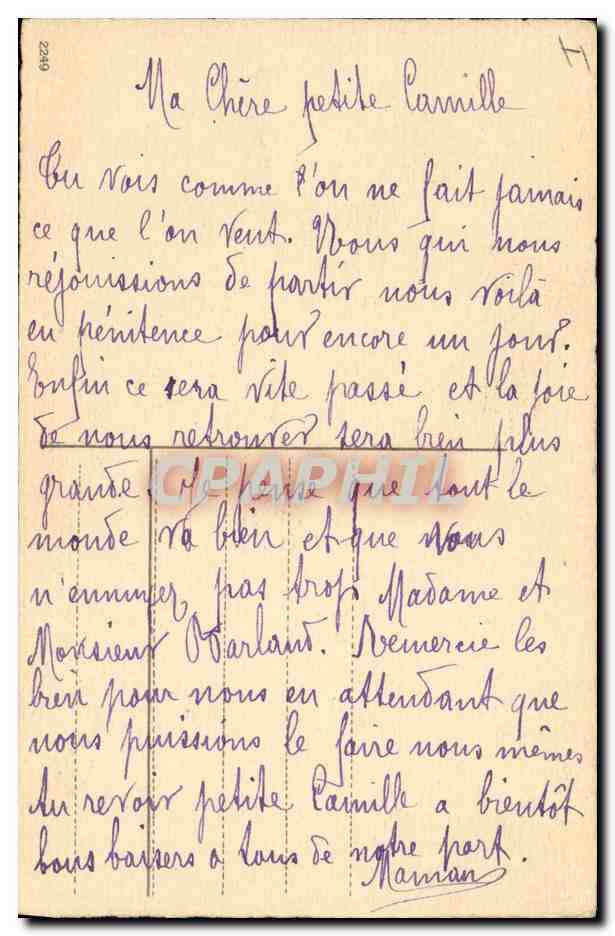 2249
Ma Chère petite Camille
Tu vois comme l'on ne fait jamais
ce que l'on veut. Nous qui nous
réjouissions de partir nous voilà
en pénitence pour encore un jour.
Enfin ce sera vite passé et la joie
de nous retrouver sera bien plus
grande. Je pense que tout le
monde va bien et que vous
n'ennuyez pas trop Madame et
Monsieur Marland. Remercie les
bien pour nous en attendant que
nous puissions le faire nous mêmes
Au revoir petite Camille a bientôt
bons baisers a tous de notre part.
Maman
CPAPHIL